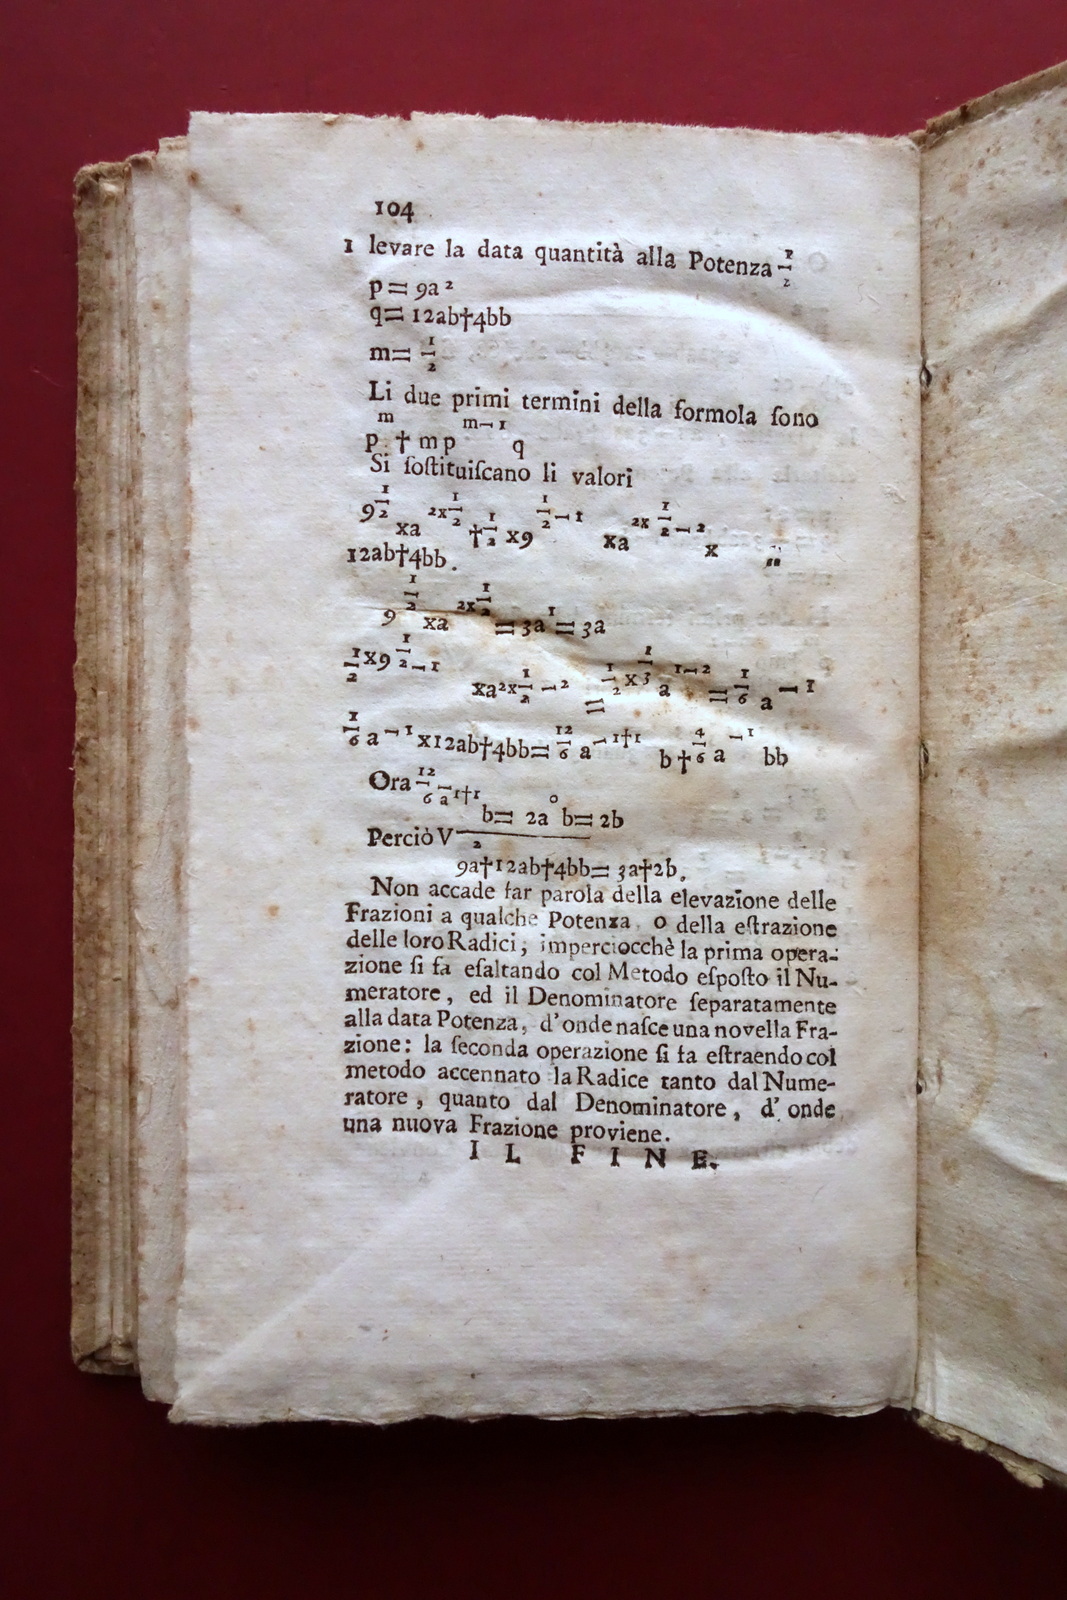 104
1 levare la data quantità alla Potenza 1/2
p = 9a²
q= 12ab†4bb
m= 1/2
Li due primi termini della formola ſono
p^m † m p^(m-1) q
Si ſoſtituiſcano li valori
9^(1/2) xa^(2x1/2) † 1/2 x9^(1/2-1) xa^(2x1/2-2) x
12ab†4bb.
9^(1/2) xa^(2x1/2) = 3a^1 = 3a
1/2 x9^(1/2-1) xa^(2x1/2-2) = 1/2 x 1/3 a^(1-2) = 1/6 a^(-1)
1/6 a^(-1) x12ab†4bb= 12/6 a^(-1†1) b† 4/6 a^(-1) bb
Ora 12/6 a^(-1†1) b= 2a^0 b= 2b
Perciò V
9a²†12ab†4bb= 3a†2b.
Non accade far parola della elevazione delle
Frazioni a qualche Potenza o della eſtrazione
delle loro Radici; imperciocchè la prima opera-
zione ſi fa eſaltando col Metodo eſpoſto il Nu-
meratore, ed il Denominatore ſeparatamente
alla data Potenza, d'onde naſce una novella Fra-
zione: la ſeconda operazione ſi fa eſtraendo col
metodo accennato la Radice tanto dal Nume-
ratore, quanto dal Denominatore, d'onde
una nuova Frazione proviene.
IL FINE.